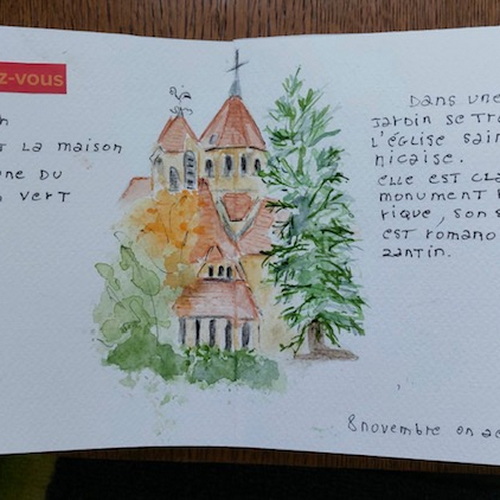 z-vous
T La maison
ne Du
vert
Dans une
Jardin se Tr
L'église sain
nicaise.
elle est cla
monument
rique, son s
est romano
zantin.
8 novembre on a